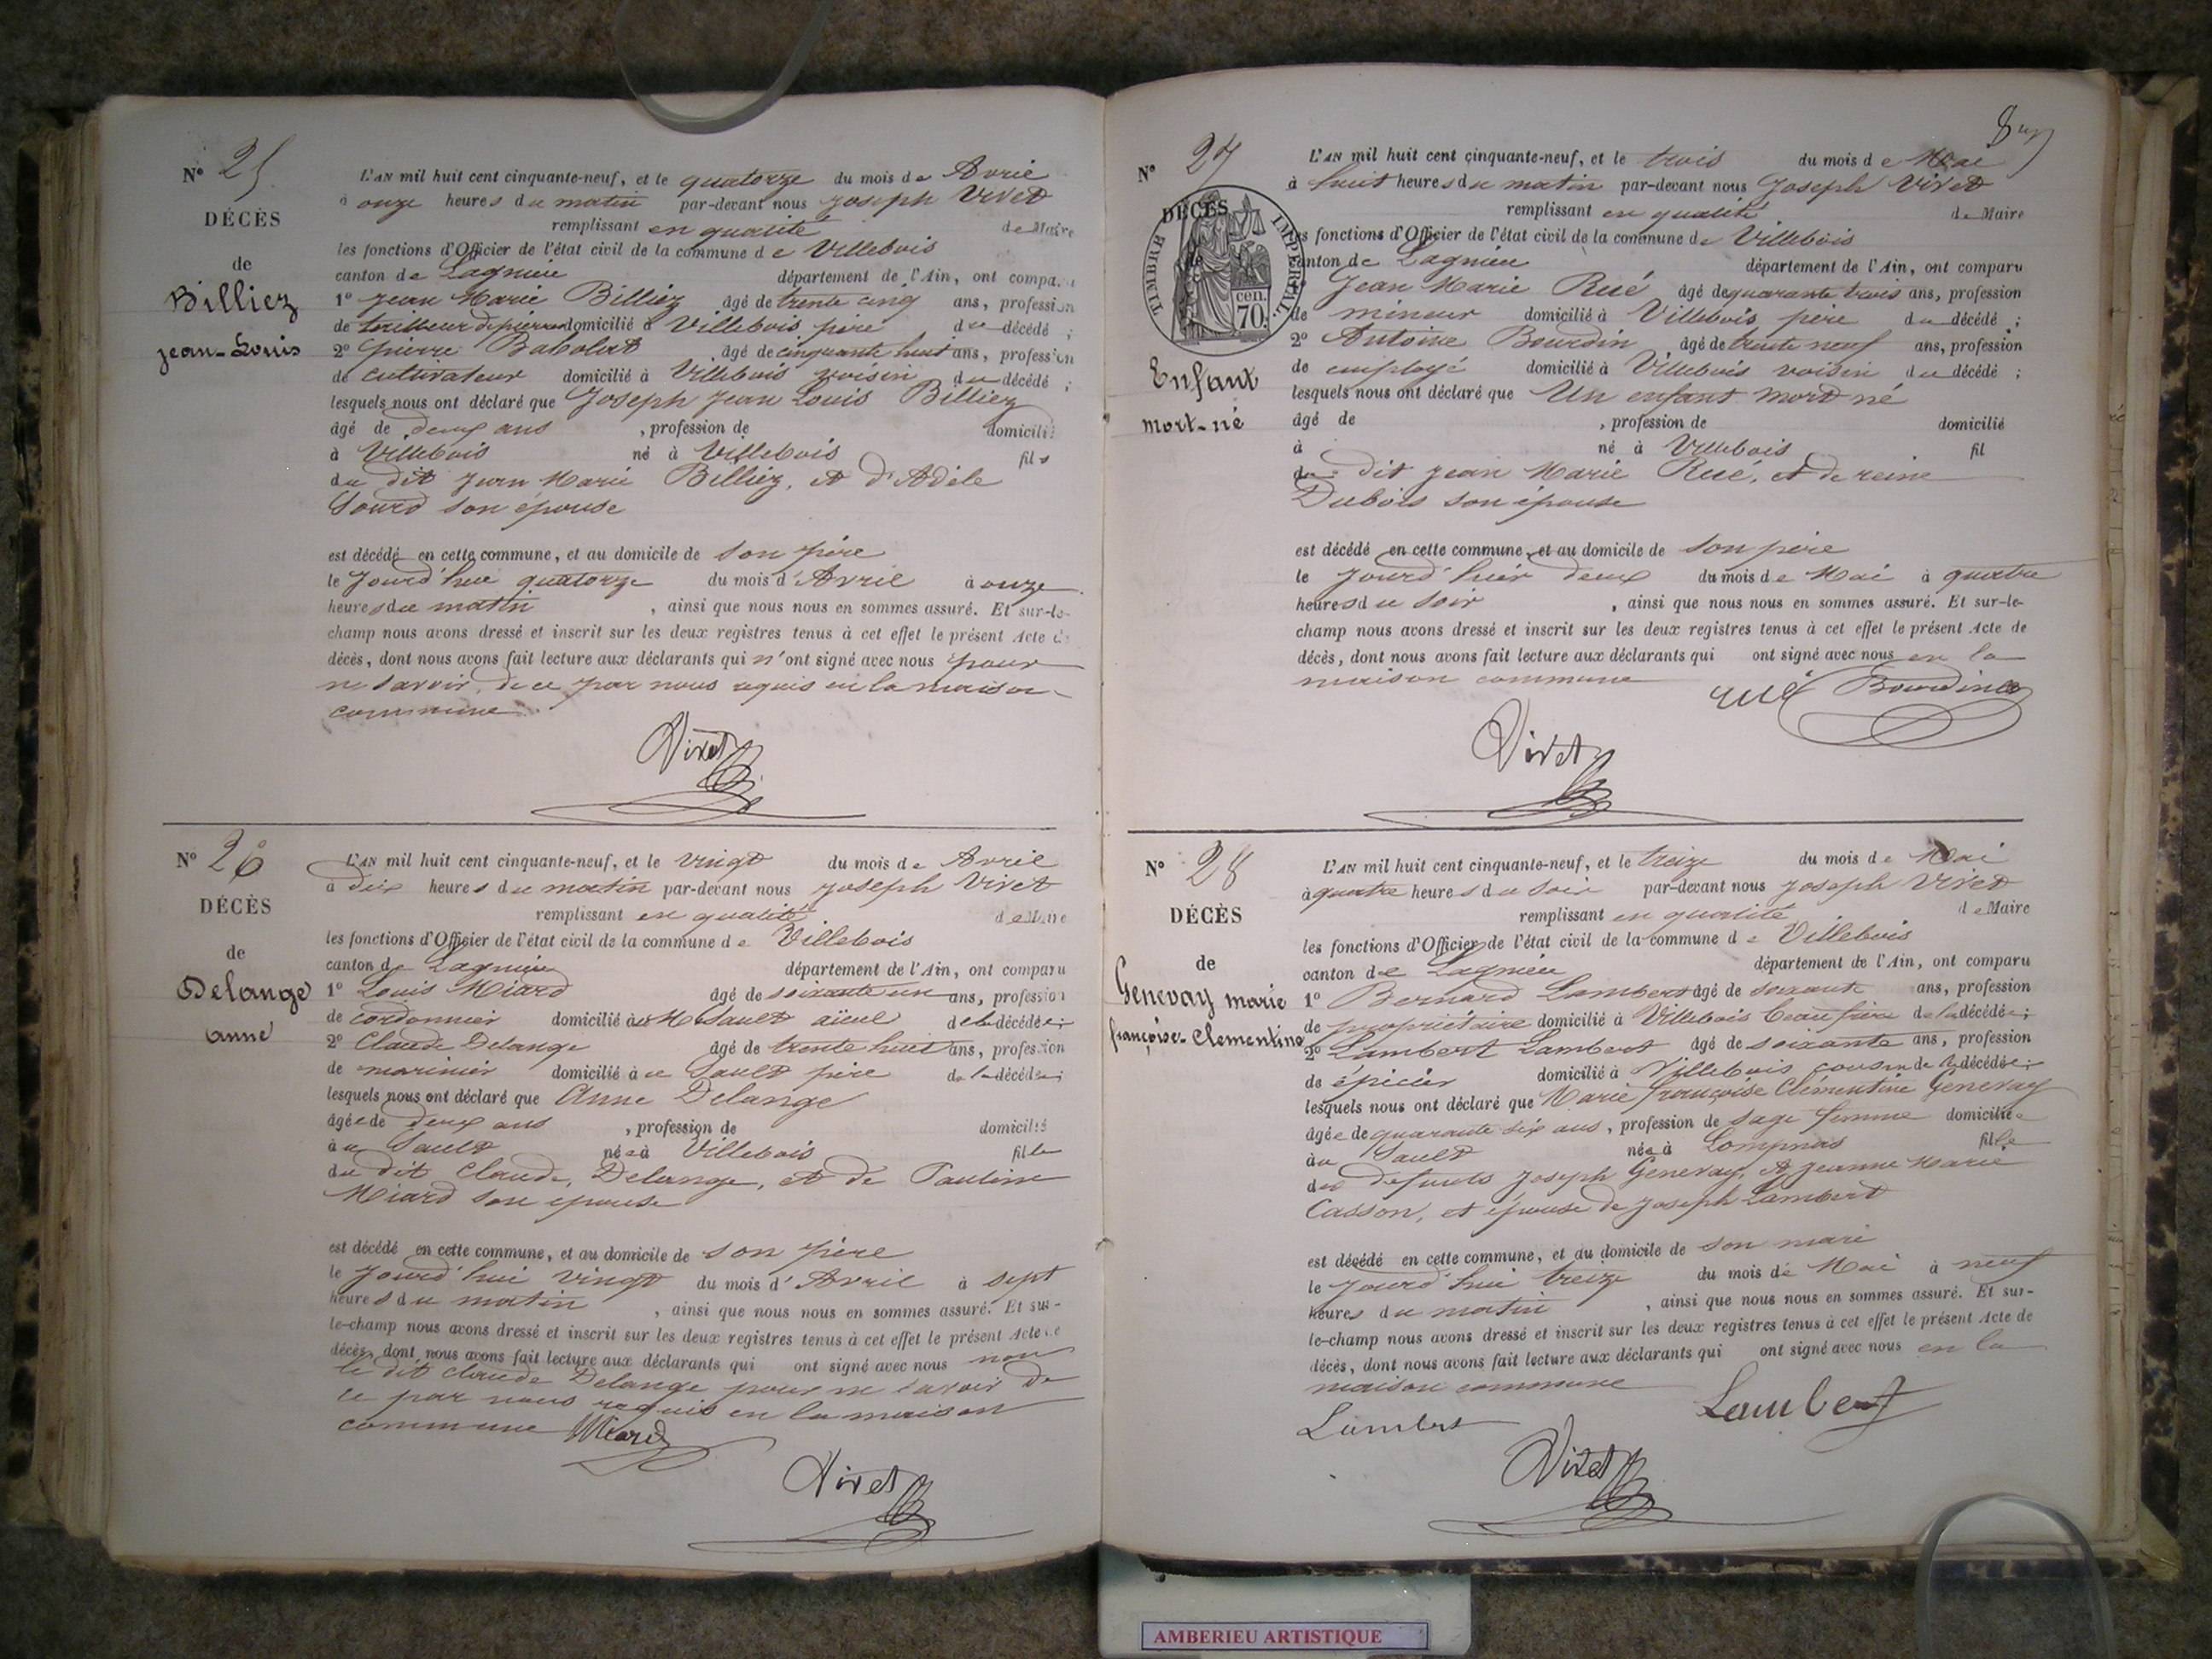 N° 25
DÉCÈS
de
Billiez
jean-Louis
L'AN mil huit cent cinquante-neuf, et le quatorze du mois de Avril
à onze heures du matin par-devant nous joseph Vivet
remplissant en qualité de Maire
les fonctions d'Officier de l'état civil de la commune de Villebois
canton de Lagnieu département de l'Ain, ont comparu
1° Jean Marie Billiez âgé de trente cinq ans, profession
de tailleur de pierre domicilié à Villebois père du décédé ;
2° Pierre Babolat âgé de cinquante huit ans, profession
de cultivateur domicilié à Villebois voisin du décédé ;
lesquels nous ont déclaré que Joseph Jean Louis Billiez
âgé de deux ans , profession de domicilié
à Villebois né à Villebois fils
du dit Jean Marie Billiez, et d'Adèle
Sourd son épouse
est décédé en cette commune, et au domicile de son père
le jourd'hui quatorze du mois d'Avril à onze
heures du matin , ainsi que nous nous en sommes assuré. Et sur-le-
champ nous avons dressé et inscrit sur les deux registres tenus à cet effet le présent Acte de
décès, dont nous avons fait lecture aux déclarants qui n'ont signé avec nous pour
ne savoir, de ce par nous requis en la maison
commune.
Vivet
N° 26
DÉCÈS
de
Delange
anne
L'AN mil huit cent cinquante-neuf, et le vingt du mois de Avril
à dix heures du matin par-devant nous joseph Vivet
remplissant en qualité de Maire
les fonctions d'Officier de l'état civil de la commune de Villebois
canton de Lagnieu département de l'Ain, ont comparu
1° Louis Miard âgé de soixante un ans, profession
de cordonnier domicilié à Sault aïeul de la décédée ;
2° Claude Delange âgé de trente huit ans, profession
de marinier domicilié à u Sault père de la décédée ;
lesquels nous ont déclaré que Anne Delange
âgée de deux ans , profession de domicilié
à u Sault née à Villebois fille
du dit Claude, Delange, et de Pauline
Miard son épouse
est décédé en cette commune, et au domicile de son père
le jourd'hui vingt du mois d'Avril à sept
heures du matin , ainsi que nous nous en sommes assuré. Et sur-
le-champ nous avons dressé et inscrit sur les deux registres tenus à cet effet le présent Acte de
décès, dont nous avons fait lecture aux déclarants qui ont signé avec nous non
le dit Claude Delange pour ne savoir de
ce par nous requis en la maison
commune Miard
Vivet
8
N° 27
DÉCÈS
de
TIMBRE IMPÉRIAL
70 cen.
Enfant
mort-né
L'AN mil huit cent cinquante-neuf, et le trois du mois de Mai
à huit heures du matin par-devant nous Joseph Vivet
remplissant en qualité de Maire
les fonctions d'Officier de l'état civil de la commune de Villebois
canton de Lagnieu département de l'Ain, ont comparu
Jean Marie Rué âgé de quarante trois ans, profession
de mineur domicilié à Villebois père du décédé ;
2° Antoine Bourdin âgé de trente neuf ans, profession
de employé domicilié à Villebois voisin du décédé ;
lesquels nous ont déclaré que Un enfant mort né
âgé de , profession de domicilié
à né à Villebois fil
du dit Jean Marie Rué, et de reine
Dubois son épouse
est décédé en cette commune, et au domicile de son père
le jourd'hier deux du mois de Mai à quatre
heures du soir , ainsi que nous nous en sommes assuré. Et sur-le-
champ nous avons dressé et inscrit sur les deux registres tenus à cet effet le présent Acte de
décès, dont nous avons fait lecture aux déclarants qui ont signé avec nous en la
maison commune rué Bourdin
Vivet
N° 28
DÉCÈS
de
Genevay marie
françoise-Clementine
L'AN mil huit cent cinquante-neuf, et le treize du mois de Mai
à quatre heures du soir par-devant nous Joseph Vivet
remplissant en qualité de Maire
les fonctions d'Officier de l'état civil de la commune de Villebois
canton de Lagnieu département de l'Ain, ont comparu
1° Bernard Lambert âgé de soixante ans, profession
de propriétaire domicilié à Villebois beau frère de la décédée ;
2° Lambert Lambert âgé de soixante ans, profession
de épicier domicilié à Villebois cousin de la décédée ;
lesquels nous ont déclaré que Marie Françoise Clémentine Genevay
âgée de quarante six ans , profession de sage femme domiciliée
au Sault née à Lompnas fille
des défunts Joseph Genevay, et Jeanne Marie
Casson, et épouse de Joseph Lambert
est décédé en cette commune, et au domicile de son mari
le jourd'hui treize du mois de Mai à neuf
heures du matin , ainsi que nous nous en sommes assuré. Et sur-
le-champ nous avons dressé et inscrit sur les deux registres tenus à cet effet le présent Acte de
décès, dont nous avons fait lecture aux déclarants qui ont signé avec nous en la
maison commune
Lambert Lambert
Vivet
AMBERIEU ARTISTIQUE